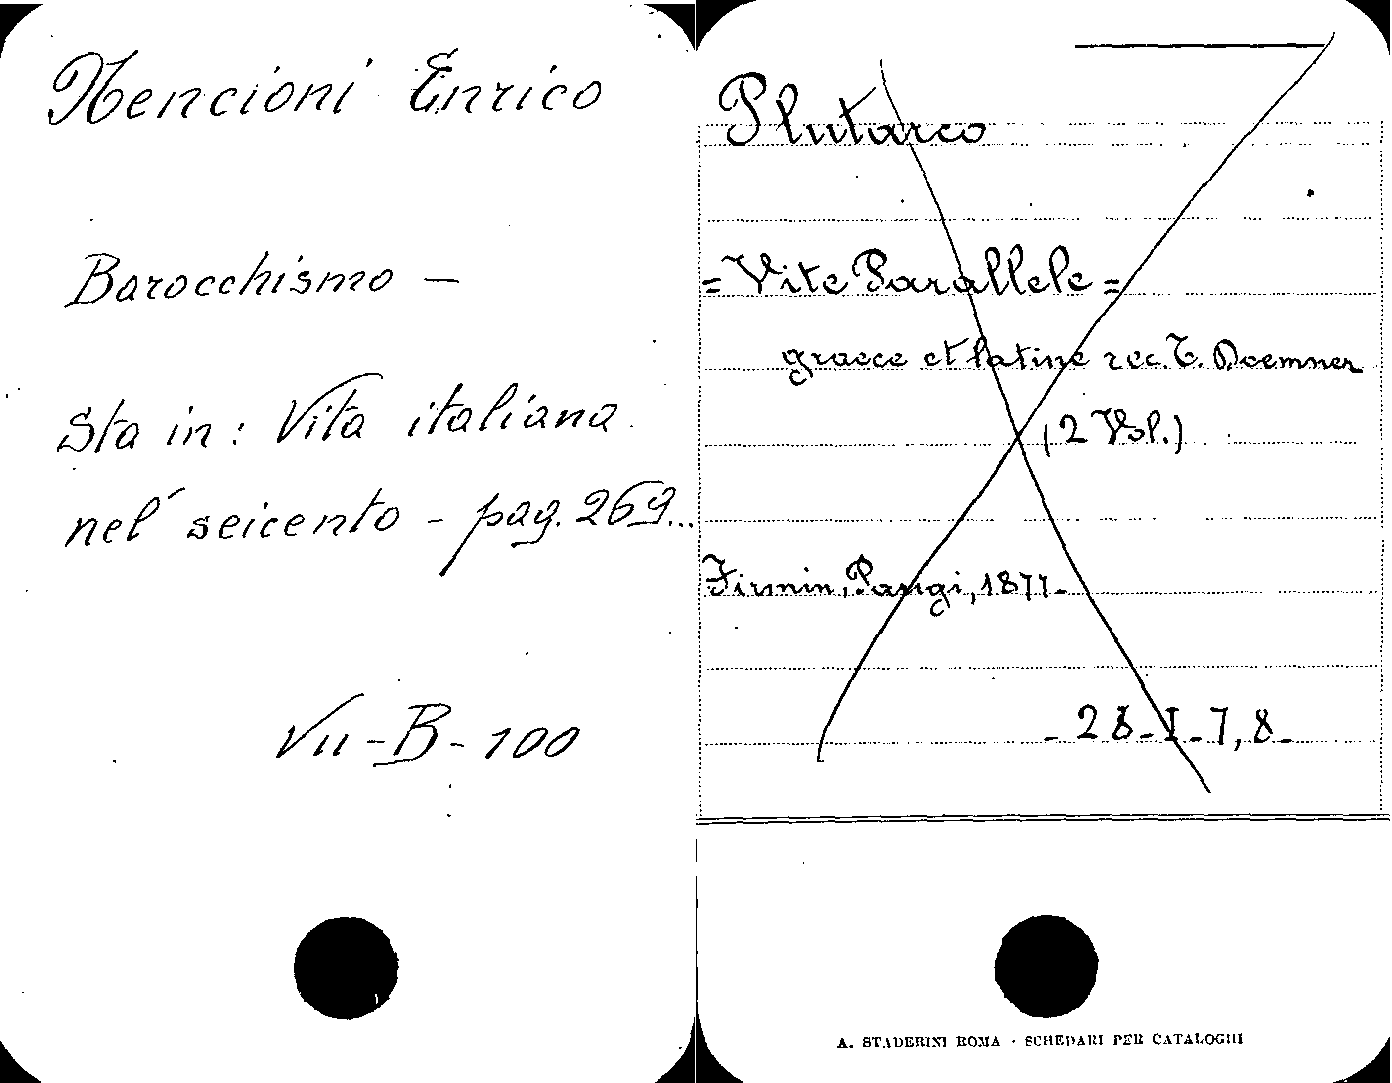 Nencioni Enrico
Barocchismo —
Sta in: Vita italiana
nel seicento - pag. 269...
VII-B-100
Plutarco
=Vite Parallele=
graece et latine rec. T. Doemner
(2 Vol.)
Firmin, Parigi, 1877-
- 28-I-7,8-
A. STADERINI ROMA · SCHEDARI PER CATALOGHI